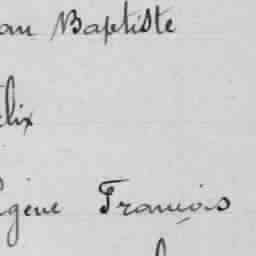 an Baptiste
élix
gène François